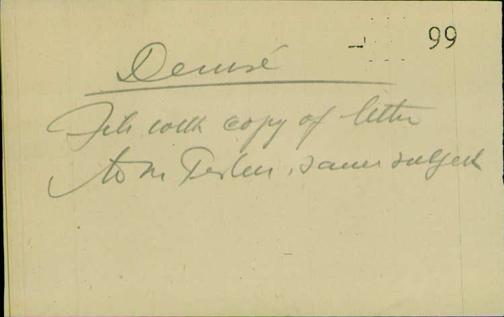 99
File with copy of letter
to Mr , same subject